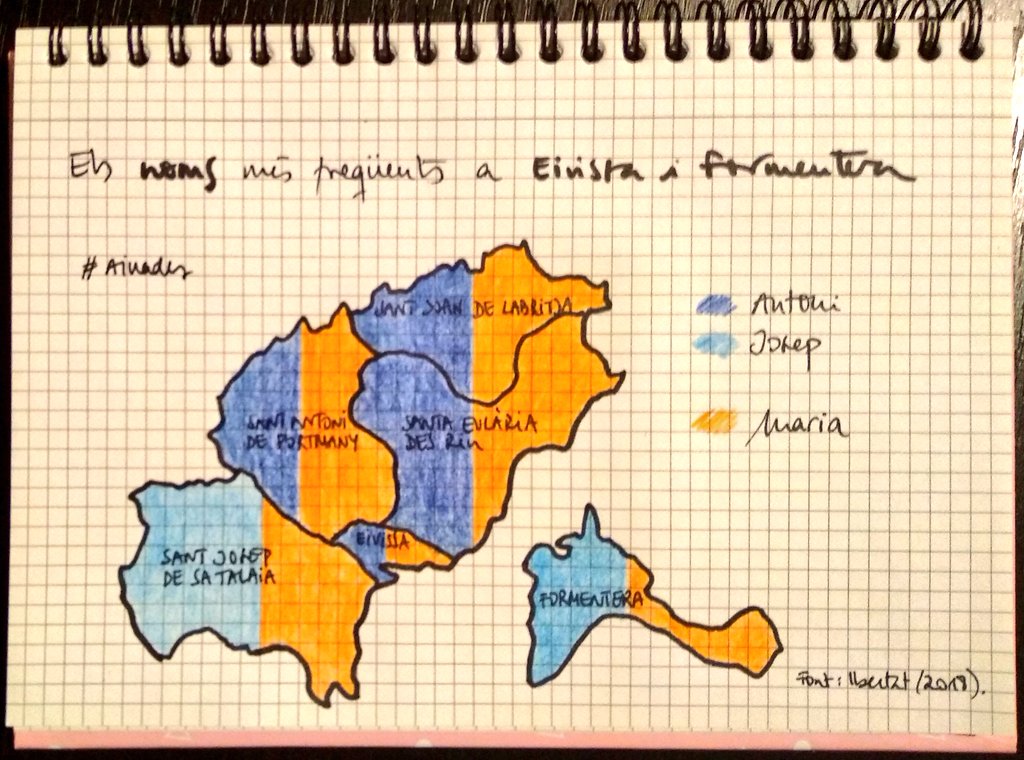 Els noms més freqüents a Eivissa i Formentera
#Ainades
SANT JOAN DE LABRITJA
Antoni
Josep
SANT ANTONI
DE PORTMANY
SANTA EULÀRIA
DES RIU
Maria
EIVISSA
SANT JOSEP
DE SA TALAIA
FORMENTERA
Font: Ibestat (2018).